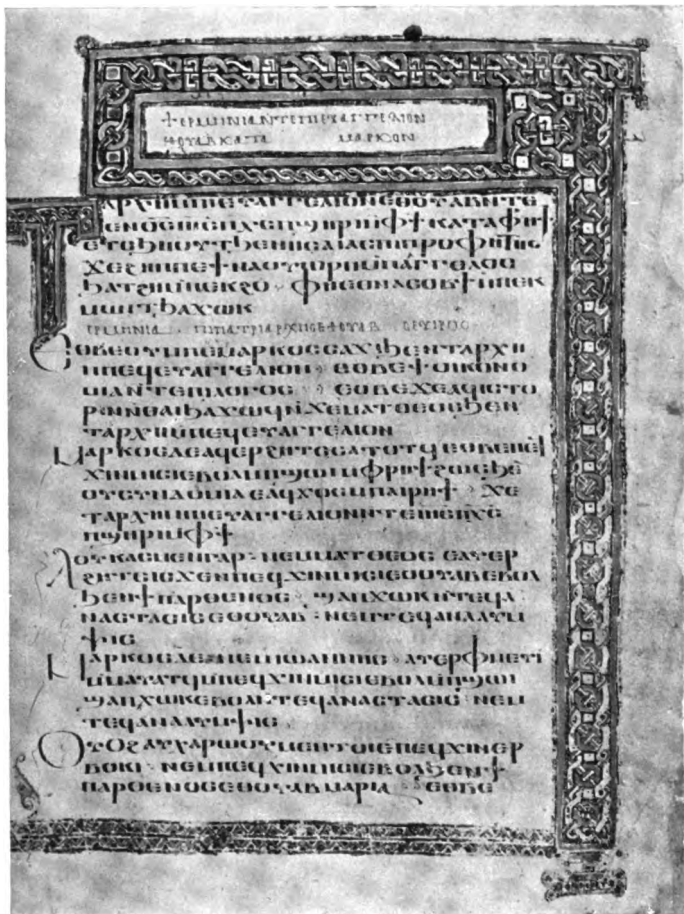 ϯⲉⲣⲙⲏⲛⲓⲁ ⲛⲧⲉⲡⲓⲉⲩⲁⲅⲅⲉⲗⲓⲟⲛ
ⲉⲑⲟⲩⲁⲃ ⲕⲁⲧⲁ ⲙⲁⲣⲕⲟⲛ
ⲧⲁⲣⲭⲏ ⲙⲡⲓⲉⲩⲁⲅⲅⲉⲗⲓⲟⲛ ⲉⲑⲟⲩⲁⲃ ⲛⲧⲉ
ⲡⲉⲛϭⲥ ⲓⲏⲥ ⲡⲭⲥ ⲡϣⲏⲣⲓ ⲙⲫϯ ⲕⲁⲧⲁ ⲫⲣⲏϯ
ⲉⲧⲥϧⲏⲟⲩⲧ ϧⲉⲛ ⲏⲥⲁⲓⲁⲥ ⲡⲓⲡⲣⲟⲫⲏⲧⲏⲥ
ϫⲉ ϩⲏⲡⲡⲉ ϯⲛⲁⲟⲩⲱⲣⲡ ⲙⲡⲁⲁⲅⲅⲉⲗⲟⲥ
ϧⲁⲧϩⲏ ⲙⲡⲉⲕϩⲟ ⲫⲏⲉⲑⲛⲁⲥⲟⲃϯ ⲙⲡⲉⲕ
ⲙⲱⲓⲧ ϧⲁϫⲱⲕ
ⲉⲣⲙⲏⲛⲓⲁ ⲡⲓⲡⲁⲧⲣⲓⲁⲣⲭⲏⲥ ⲉⲑⲟⲩⲁⲃ
ⲉⲑⲃⲉⲟⲩ ⲡⲉ ⲙⲁⲣⲕⲟⲥ ⲥⲁϫⲓ ϧⲉⲛ ⲧⲁⲣⲭⲏ
ⲙⲡⲉϥⲉⲩⲁⲅⲅⲉⲗⲓⲟⲛ ⲉⲑⲃⲉ ϯⲟⲓⲕⲟⲛⲟ
ⲙⲓⲁ ⲛⲧⲉ ⲡⲓⲗⲟⲅⲟⲥ ⲉⲑⲃⲉ ϫⲉ ⲁϥⲓⲥⲧⲟ
ϧⲁϫⲱϥ ⲛϫⲉ ⲙⲁⲧⲑⲉⲟⲥ ϧⲉⲛ
ⲧⲁⲣⲭⲏ ⲙⲡⲉϥⲉⲩⲁⲅⲅⲉⲗⲓⲟⲛ
ⲙⲁⲣⲕⲟⲥ ⲇⲉ ⲁϥⲉⲣϩⲏⲧⲥ ⲥⲁⲧⲟⲧϥ ⲉⲑⲃⲉ ⲡⲉϥ
ϫⲓⲛⲙⲓⲥⲓ ⲉⲃⲟⲗ ⲙⲡϣⲱⲓ ⲙⲫⲣⲏϯ
ⲁϥϫⲟⲥ ⲙⲡⲁⲓⲣⲏϯ ϫⲉ
ⲧⲁⲣⲭⲏ ⲙⲡⲓⲉⲩⲁⲅⲅⲉⲗⲓⲟⲛ ⲛⲧⲉ ⲓⲏⲥ ⲡⲭⲥ
ⲡϣⲏⲣⲓ ⲙⲫϯ
ⲗⲟⲩⲕⲁⲥ ⲙⲉⲛ ⲅⲁⲣ ⲛⲉⲙ ⲙⲁⲧⲑⲉⲟⲥ ⲉⲁⲩⲉⲣ
ϩⲏⲧⲥ ⲓⲥϫⲉⲛ ⲡⲉϥϫⲓⲛⲙⲓⲥⲓ ⲉⲑⲟⲩⲁⲃ ⲉⲃⲟⲗ
ϧⲉⲛ ϯⲡⲁⲣⲑⲉⲛⲟⲥ ϣⲁ ⲡϫⲱⲕ ⲛⲧⲉϥⲁ
ⲛⲁⲥⲧⲁⲥⲓⲥ ⲉⲑⲟⲩⲁⲃ ⲛⲉⲙ ⲧⲉϥⲁⲛⲁⲗⲩⲙ
ⲯⲓⲥ
ⲙⲁⲣⲕⲟⲥ ⲇⲉ ⲛⲉⲙ ⲓⲱⲁⲛⲛⲏⲥ ⲁⲩⲉⲣⲫⲙⲉⲩⲓ
ⲙⲙⲁⲩⲁⲧϥ ⲙⲡⲉϥϫⲓⲛⲙⲓⲥⲓ ⲉⲃⲟⲗ ⲙⲡϣⲱⲓ
ϣⲁ ⲡϫⲱⲕ ⲉⲃⲟⲗ ⲛⲧⲉϥⲁⲛⲁⲥⲧⲁⲥⲓⲥ ⲛⲉⲙ
ⲧⲉϥⲁⲛⲁⲗⲩⲙⲯⲓⲥ
ⲟⲩⲟϩ ⲁⲩⲭⲁⲣⲱⲟⲩ ⲙⲉⲛⲧⲟⲓ ⲉⲡⲉϥϫⲓⲛⲉⲣ
ⲃⲟⲕⲓ ⲛⲉⲙ ⲡⲉϥϫⲓⲛⲙⲓⲥⲓ ⲉⲃⲟⲗ ϧⲉⲛ ϯ
ⲡⲁⲣⲑⲉⲛⲟⲥ ⲉⲑⲟⲩⲁⲃ ⲙⲁⲣⲓⲁ ⲉⲑⲃⲉ